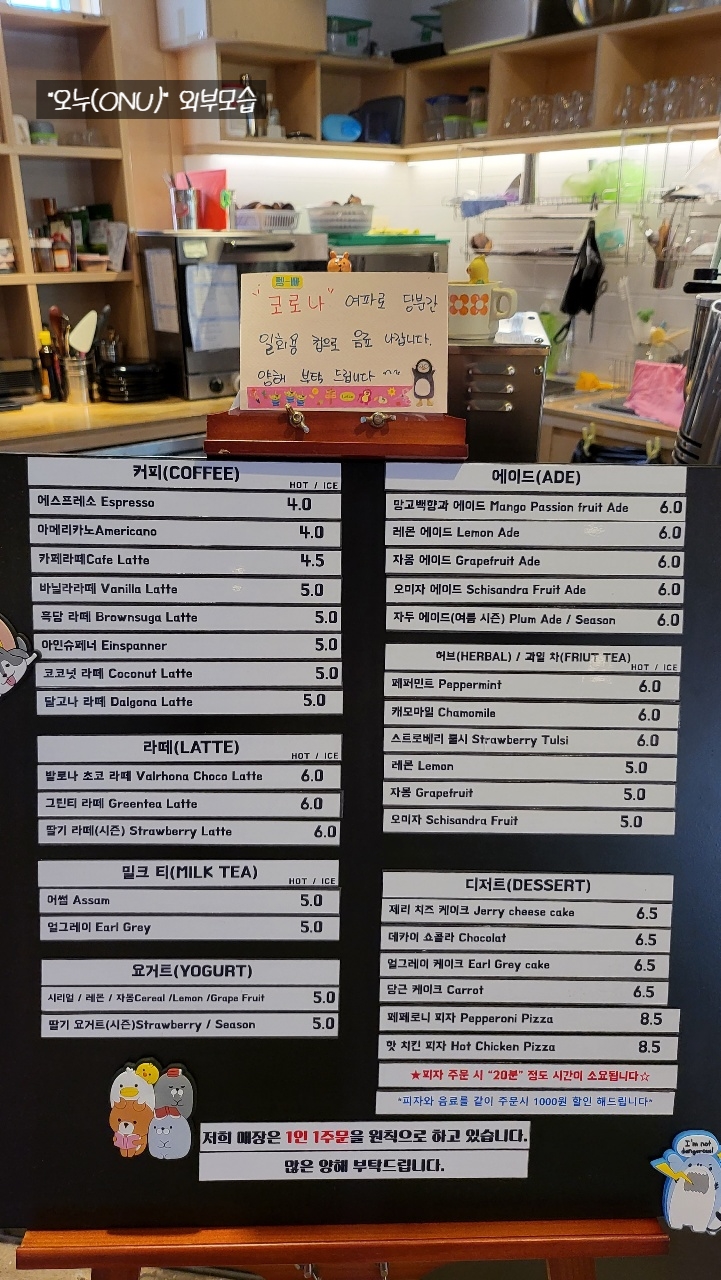 "오누(ONU)" 외부모습
"코로나" 여파로 당분간
일회용 컵으로 음료 나갑니다.
양해 부탁 드립니다 ^^
커피(COFFEE)
HOT / ICE
에스프레소 Espresso 4.0
아메리카노Americano 4.0
카페라떼Cafe Latte 4.5
바닐라라떼 Vanilla Latte 5.0
흑당 라떼 Brownsuga Latte 5.0
아인슈페너 Einspanner 5.0
코코넛 라떼 Coconut Latte 5.0
달고나 라떼 Dalgona Latte 5.0
라떼(LATTE)
HOT / ICE
발로나 초코 라떼 Valrhona Choco Latte 6.0
그린티 라떼 Greentea Latte 6.0
딸기 라떼(시즌) Strawberry Latte 6.0
밀크 티(MILK TEA)
HOT / ICE
어썸 Assam 5.0
얼그레이 Earl Grey 5.0
요거트(YOGURT)
시리얼 / 레몬 / 자몽Cereal /Lemon /Grape Fruit 5.0
딸기 요거트(시즌)Strawberry / Season 5.0
에이드(ADE)
망고백향과 에이드 Mango Passion fruit Ade 6.0
레몬 에이드 Lemon Ade 6.0
자몽 에이드 Grapefruit Ade 6.0
오미자 에이드 Schisandra Fruit Ade 6.0
자두 에이드(여름 시즌) Plum Ade / Season 6.0
허브(HERBAL) / 과일 차(FRIUT TEA)
HOT / ICE
페퍼민트 Peppermint 6.0
캐모마일 Chamomile 6.0
스트로베리 툴시 Strawberry Tulsi 6.0
레몬 Lemon 5.0
자몽 Grapefruit 5.0
오미자 Schisandra Fruit 5.0
디저트(DESSERT)
제리 치즈 케이크 Jerry cheese cake 6.5
데카이 쇼콜라 Chocolat 6.5
얼그레이 케이크 Earl Grey cake 6.5
당근 케이크 Carrot 6.5
페페로니 피자 Pepperoni Pizza 8.5
핫 치킨 피자 Hot Chicken Pizza 8.5
★피자 주문 시 "20분" 정도 시간이 소요됩니다☆
"피자와 음료를 같이 주문시 1000원 할인 해드립니다"
저희 매장은 1인 1주문을 원칙으로 하고 있습니다.
많은 양해 부탁드립니다.
I'm not
dangerous!